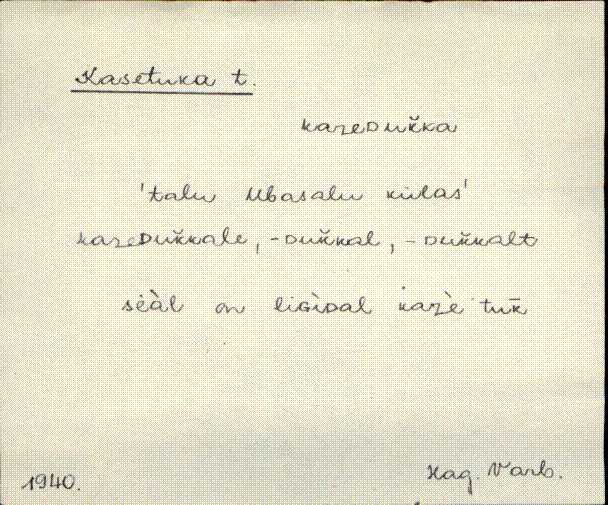 Kasetuka t.
kazeDuk̆ka
'talu Ubasalu külas'
kazeDuk̆kale, -Duk̆kal, -Duk̆kalt
sèàl on liGìDal kazè tuk̄
1940.
Hag. Varb.